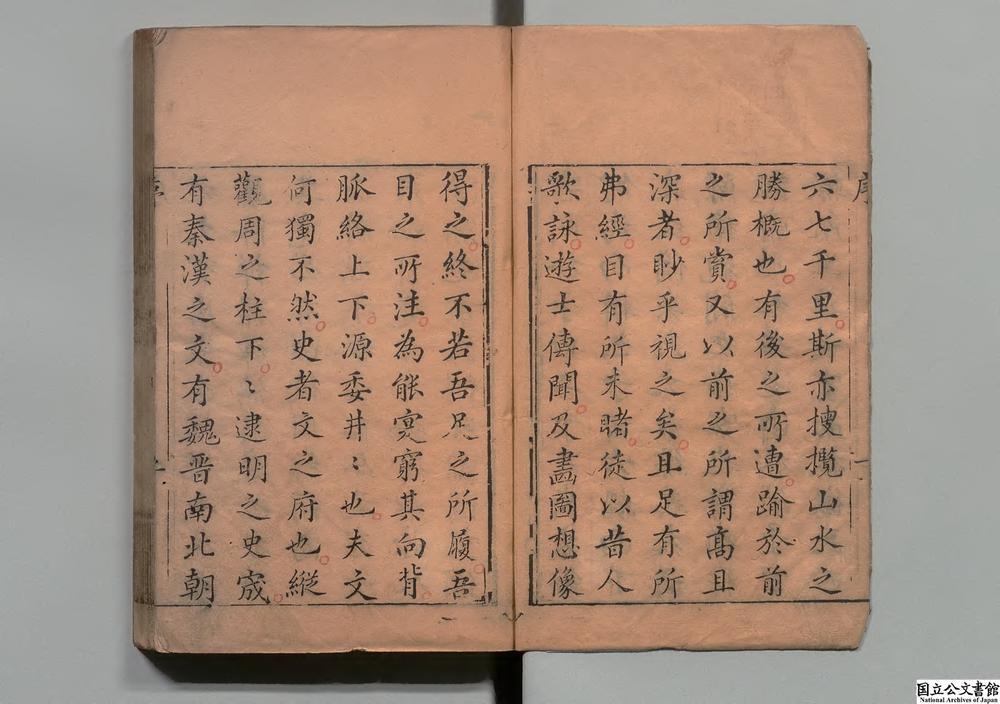 序
六七千里斯亦搜攬山水之
勝概也有後之所遭踰於前
之所賞又以前之所謂高且
深者眇乎視之矣且足有所
弗經目有所未睹徒以昔人
歌詠遊士傳聞及畫圖想像
得之終不若吾足之所履吾
目之所注為能寔窮其向背
脈絡上下源委井〻也夫文
何獨不然史者文之府也縱
觀周之柱下〻逮明之史宬
有秦漢之文有魏晋南北朝
国立公文書館
National Archives of Japan